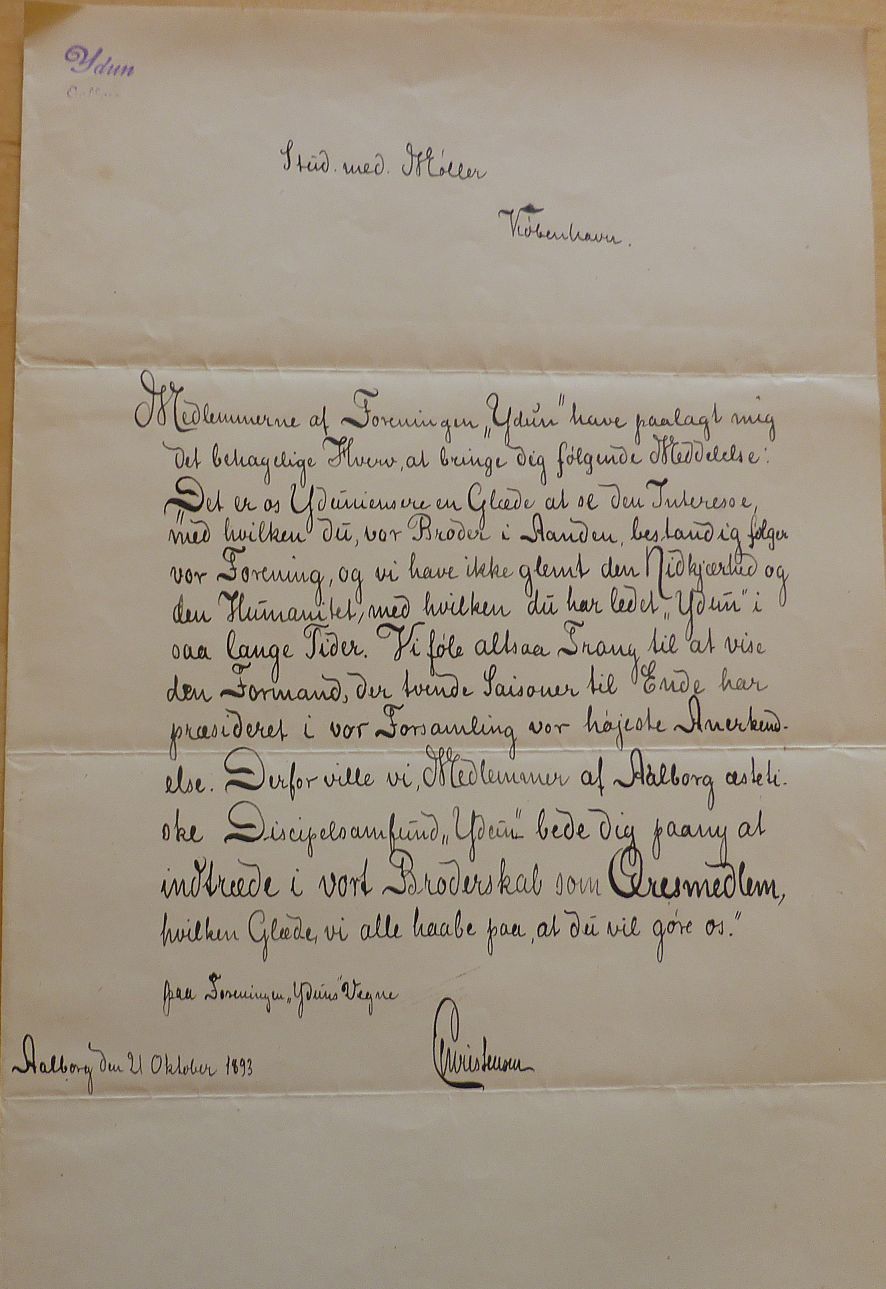 Ydun
Stud. med. Møller
København.
Medlemmerne af Foreningen „Ydun" have paalagt mig
det behagelige Hverv, at bringe dig følgende Meddelelse:
„Det er os Yduniensere en Glæde at se den Interesse,
med hvilken du, vor Broder i Aanden, bestandig følger
vor Forening, og vi have ikke glemt den Nidkjærhed og
den Humanitet, med hvilken du har ledet „Ydun" i
saa lange Tider. Vi føle altsaa Trang til at vise
den Formand, der tvende Saisoner til Ende har
præsideret i vor Forsamling vor højeste Anerkend-
else. Derfor ville vi, Medlemmer af Aalborg æsteti-
ske Discipelsamfund „Ydun" bede dig paany at
indtræde i vort Broderskab som Æresmedlem,
hvilken Glæde, vi alle haabe paa, at du vil gøre os."
paa Foreningen „Yduns" Vegne
Christensen
Aalborg den 21 Oktober 1893